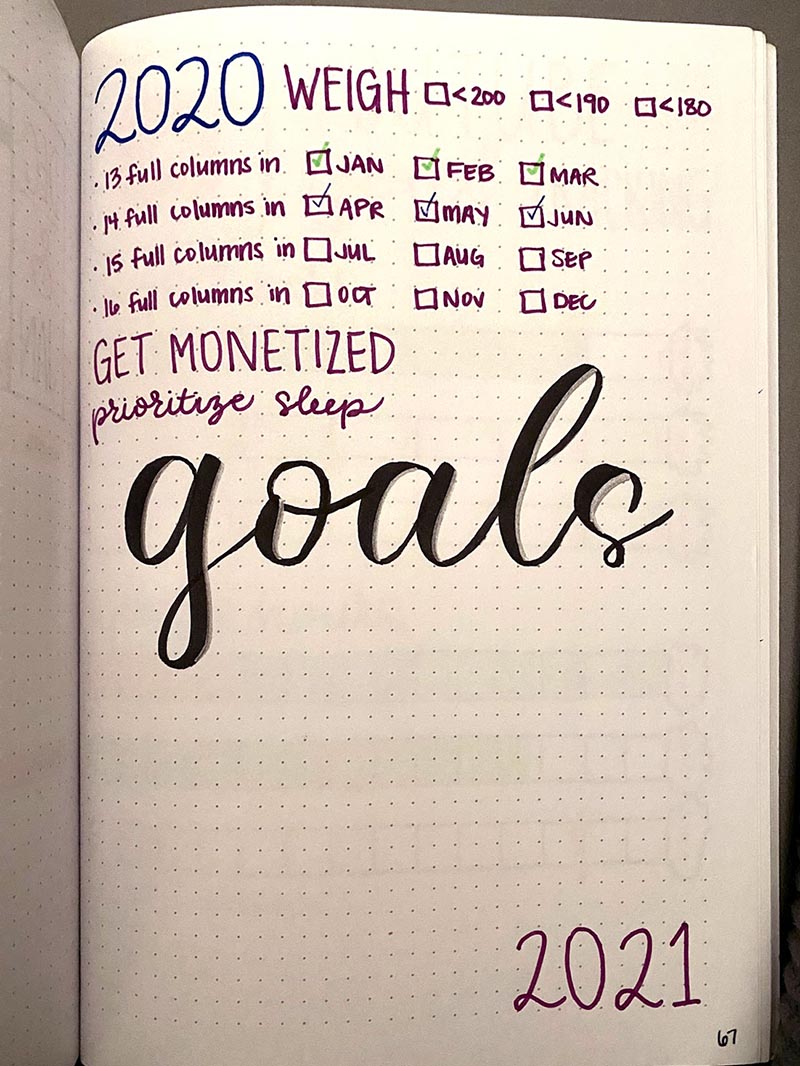 2020 WEIGH □<200 □<190 □<180
· 13 full columns in ☑ JAN ☑ FEB ☑ MAR
· 14 full columns in ☑ APR ☑ MAY ☑ JUN
· 15 full columns in □ JUL □ AUG □ SEP
· 16 full columns in □ OCT □ NOV □ DEC
GET MONETIZED
prioritize sleep
goals
2021
67